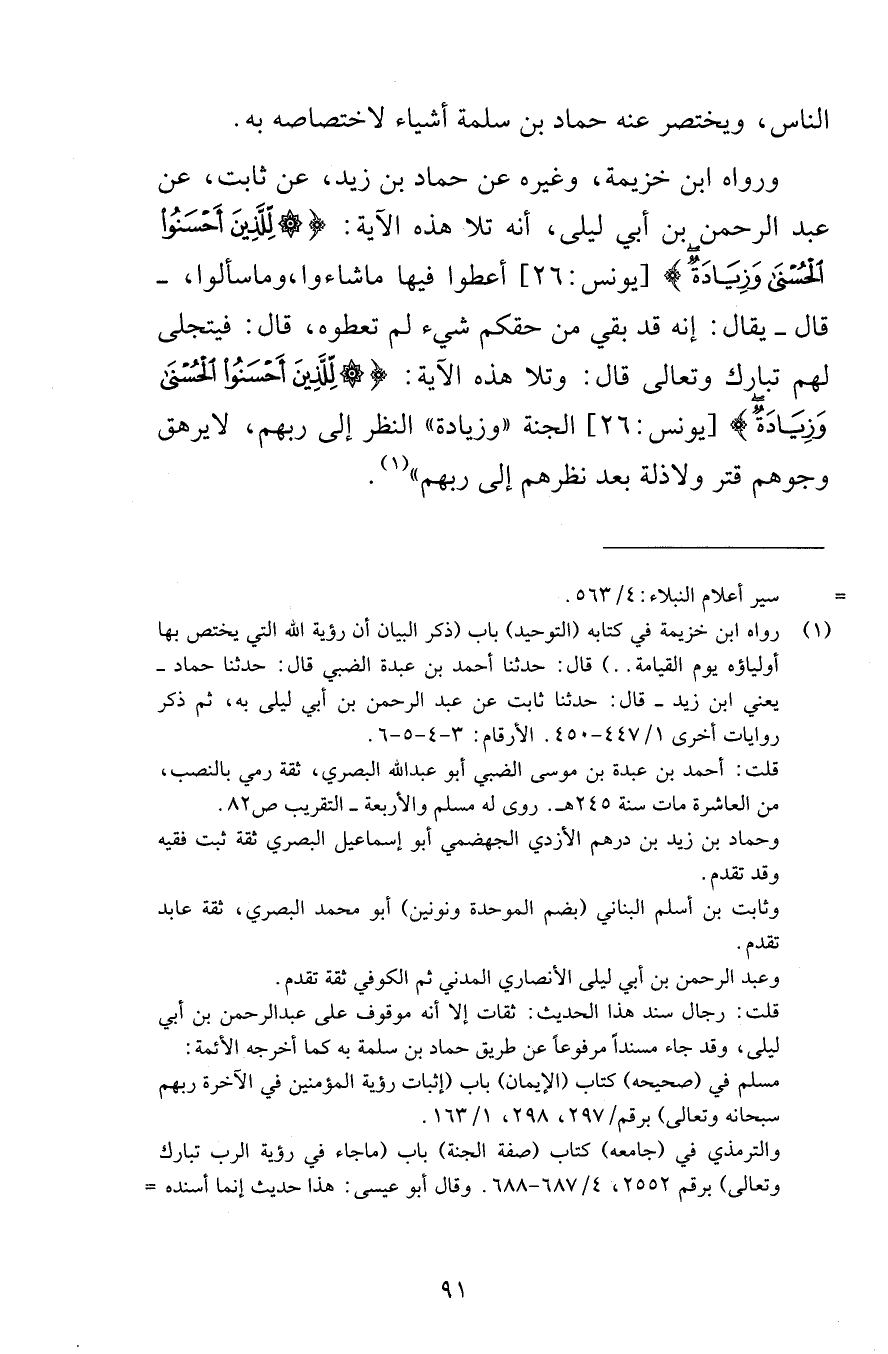 الناس، ويختصر عنه حماد بن سلمة أشياء لاختصاصه به.
ورواه ابن خزيمة، وغيره عن حماد بن زيد، عن ثابت، عن
عبد الرحمن بن أبي ليلى، أنه تلا هذه الآية: ﴿ ۞ لِّلَّذِينَ أَحْسَنُوا۟
ٱلْحُسْنَىٰ وَزِيَادَةٌۖ ﴾ [يونس: ٢٦] أعطوا فيها ماشاءوا،وماسألوا، ـ
قال ـ يقال: إنه قد بقي من حقكم شيء لم تعطوه، قال: فيتجلى
لهم تبارك وتعالى قال: وتلا هذه الآية: ﴿ ۞ لِّلَّذِينَ أَحْسَنُوا۟ ٱلْحُسْنَىٰ
وَزِيَادَةٌۖ ﴾ [يونس: ٢٦] الجنة «وزيادة» النظر إلى ربهم، لايرهق
وجوهم قتر ولاذلة بعد نظرهم إلى ربهم»(١).
= سير أعلام النبلاء: ٤/ ٥٦٣.
(١) رواه ابن خزيمة في كتابه (التوحيد) باب (ذكر البيان أن رؤية الله التي يختص بها
أولياؤه يوم القيامة..) قال: حدثنا أحمد بن عبدة الضبي قال: حدثنا حماد ـ
يعني ابن زيد ـ قال: حدثنا ثابت عن عبد الرحمن بن أبي ليلى به، ثم ذكر
روايات أخرى ١/ ٤٤٧-٤٥٠. الأرقام: ٣-٤-٥-٦.
قلت: أحمد بن عبدة بن موسى الضبي أبو عبدالله البصري، ثقة رمي بالنصب،
من العاشرة مات سنة ٢٤٥هـ. روى له مسلم والأربعة ـ التقريب ص٨٢.
وحماد بن زيد بن درهم الأزدي الجهضمي أبو إسماعيل البصري ثقة ثبت فقيه
وقد تقدم.
وثابت بن أسلم البناني (بضم الموحدة ونونين) أبو محمد البصري، ثقة عابد
تقدم.
وعبد الرحمن بن أبي ليلى الأنصاري المدني ثم الكوفي ثقة تقدم.
قلت: رجال سند هذا الحديث: ثقات إلا أنه موقوف على عبدالرحمن بن أبي
ليلى، وقد جاء مسنداً مرفوعاً عن طريق حماد بن سلمة به كما أخرجه الأئمة:
مسلم في (صحيحه) كتاب (الإيمان) باب (إثبات رؤية المؤمنين في الآخرة ربهم
سبحانه وتعالى) برقم/ ٢٩٧، ٢٩٨، ١/ ١٦٣.
والترمذي في (جامعه) كتاب (صفة الجنة) باب (ماجاء في رؤية الرب تبارك
وتعالى) برقم ٢٥٥٢، ٤/ ٦٨٧-٦٨٨. وقال أبو عيسى: هذا حديث إنما أسنده =
٩١